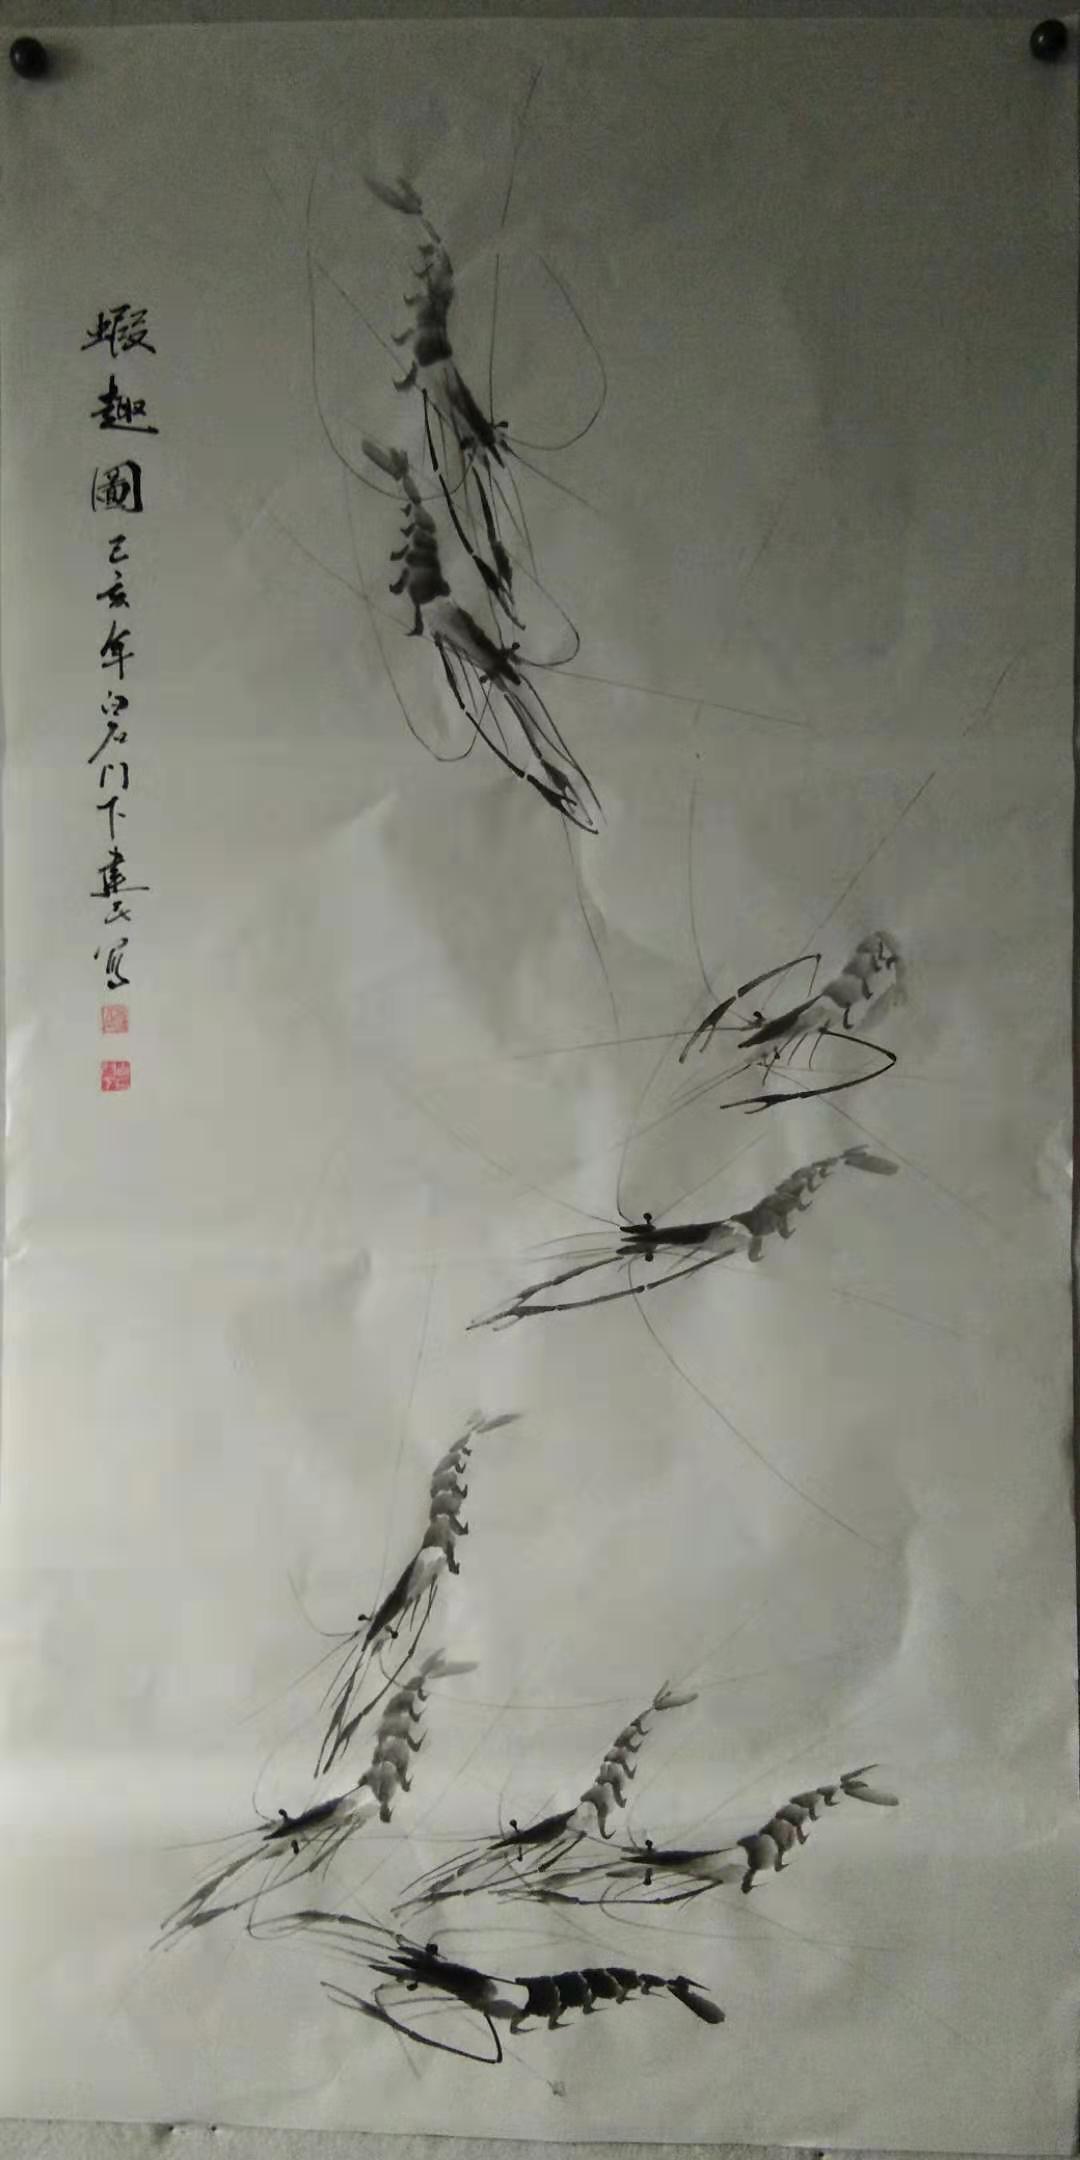 蝦趣圖己亥年白石門下建民寫